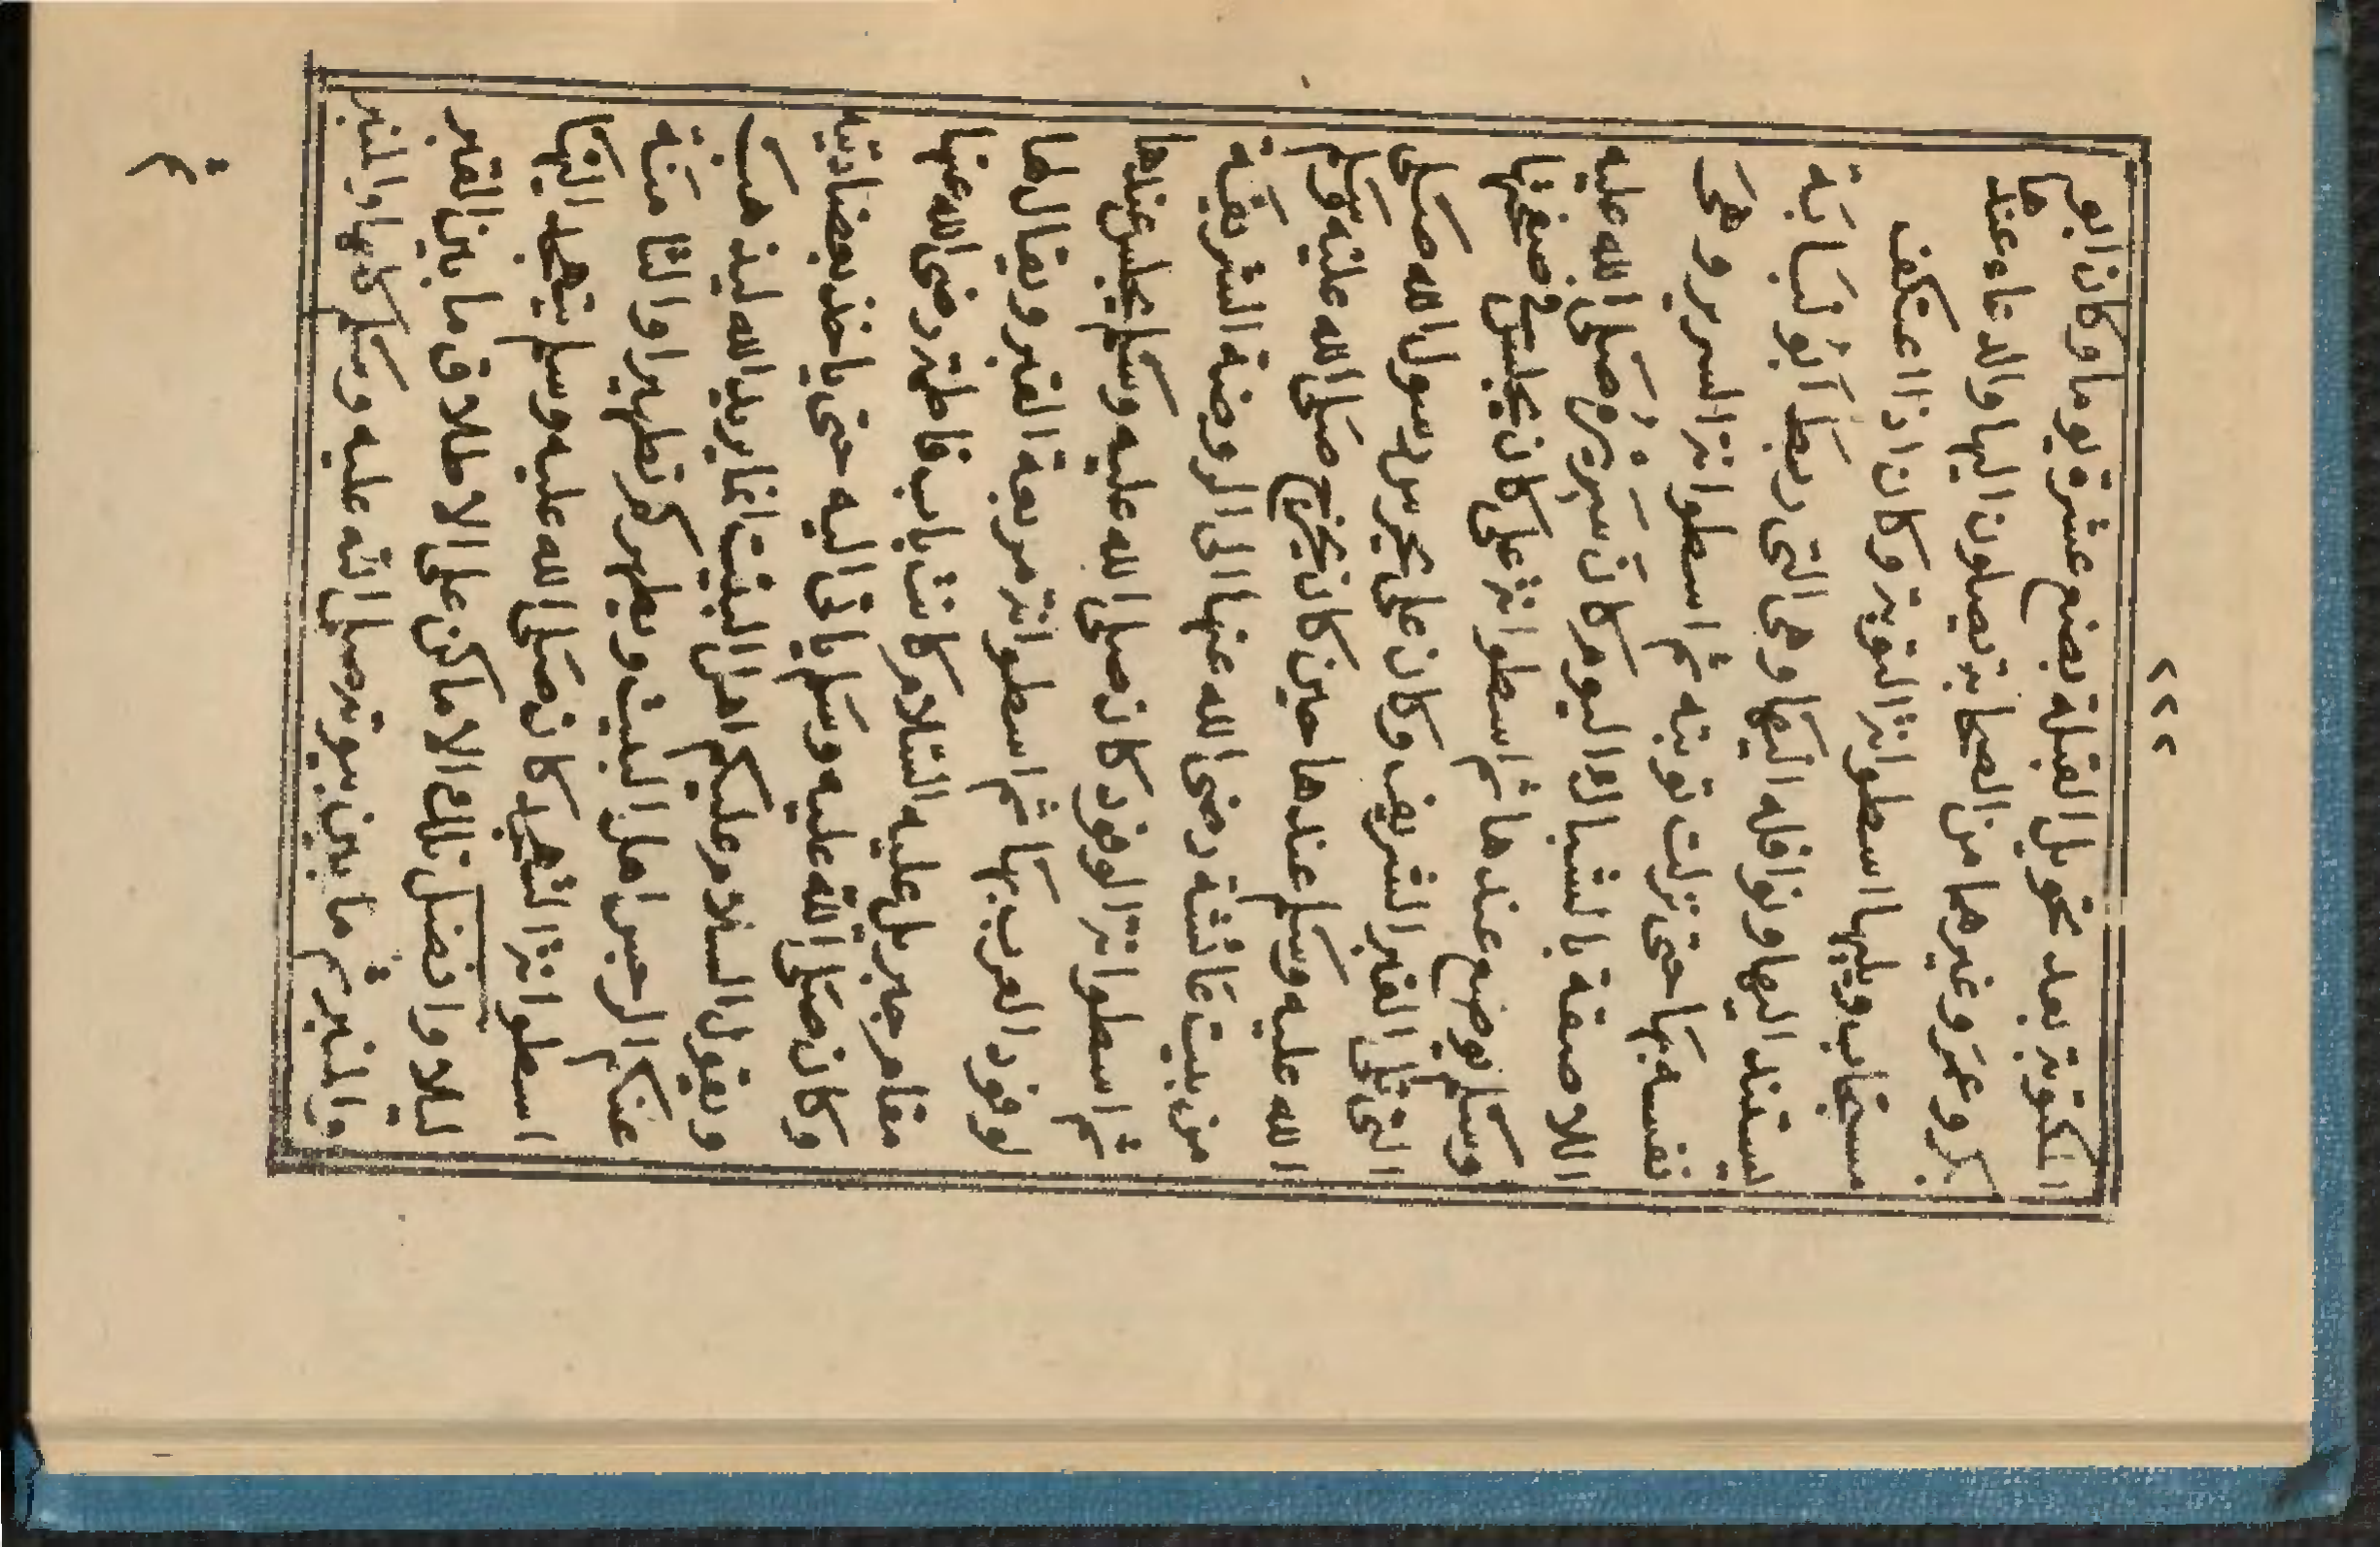 ٢٢٢
المكتوبة بعد تحويل القبلة بضع عشرة يوما وكان ابو
بكر وعمر وغيرهما من الصحابة يصلون اليها والدعاء عندها
مستجاب ويليها اسطوانة التوبة وكان اذا اعتكف
يستند اليها ونوافله اليها وهي التي ربط أبو لبابة
نفسه بها حتى نزلت توبته ثم اسطوانة السرير وهى
اللاصقة بالشباك اليوم كان سريره صلى الله عليه
وسلم يوضع عندها ثم اسطوانة على كان يجلس في صفحتها
التى تلى القبر الشريف وكان على يحرس رسول الله صلى
الله عليه وسلم عندها حين كان يخرج صلى الله عليه وسلم
من بيت عائشة رضى الله عنها الى الروضة الشريفة
ثم اسطوانة الوفود كان صلى الله عليه وسلم يجلس عندها
لوفود العرب بها ثم اسطوانة مربعة القبر ويقال لها
مقام جبريل عليه السلام كانت باب فاطمة رضى الله عنها
وكان صلى الله عليه وسلم ياتى اليه حتى ياخذ بعضادتيه
ويقول السلام عليكم اهل البيت انما يريد الله ليذهب
عنكم الرجس اهل البيت ويطهركم تطهيرا والثامنة
اسطوانة التهجد كان صلى الله عليه وسلم يتهجد اليها
ليلا وافضل تلك الاماكن على الاطلاق ما بين القبر
والمنبر ثم ما بين بيوته صلى الله عليه وسلم كلها والمنبر
ثم